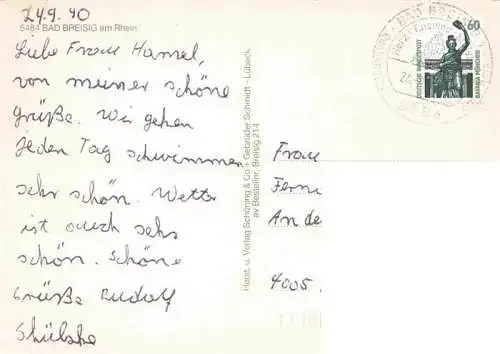 24.9.90
5484 BAD BREISIG am Rhein
Liebe Frau Hansel,
von meiner schöne
Grüße. Wir gehen
jeden Tag schwimmen
sehr schön. Wetter
ist auch sehr
schön. Schöne
Grüße Rudolf
Herst. u. Verlag Schöning & Co + Gebrüder Schmidt - Lübeck
Bestellnr. Breisig 214
60
DEUTSCHE BUNDESPOST
BAVARIA MÜNCHEN
Frau
An de
4005